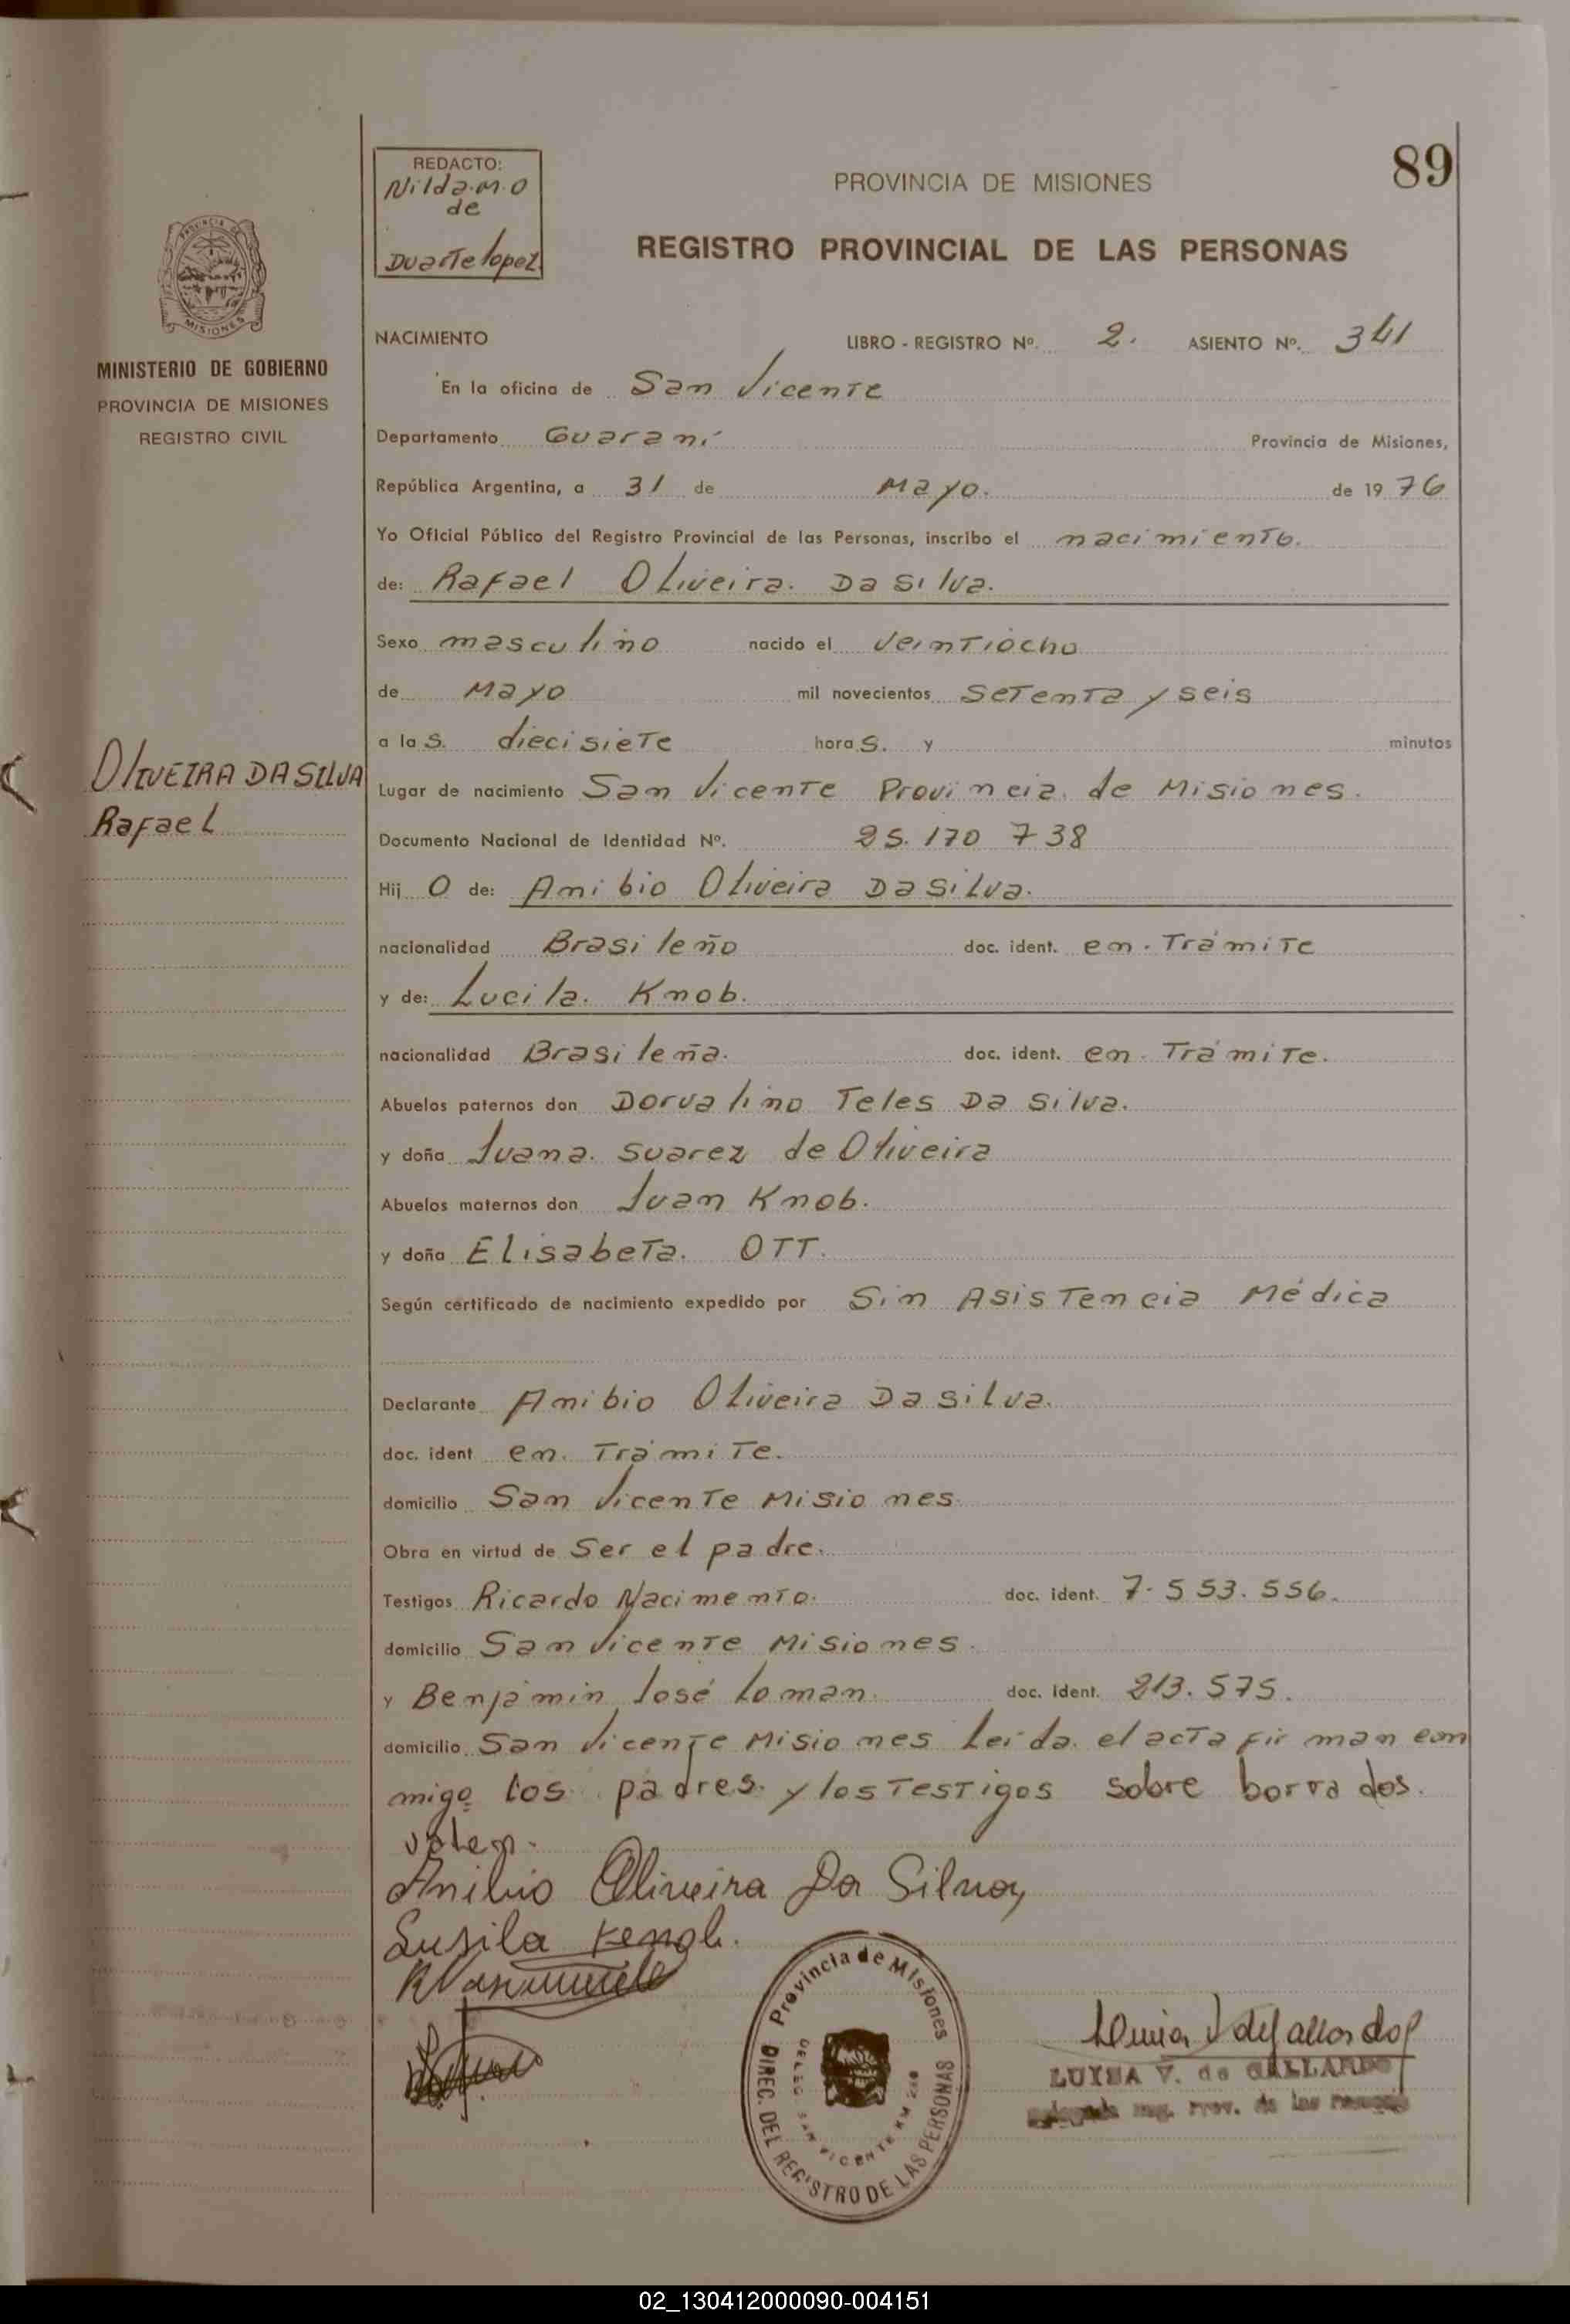 89
REDACTO:
Nilda.M.O
de
Duarte lopez
PROVINCIA DE MISIONES
REGISTRO PROVINCIAL DE LAS PERSONAS
PROVINCIA DE
MISIONES
MINISTERIO DE GOBIERNO
PROVINCIA DE MISIONES
REGISTRO CIVIL
NACIMIENTO LIBRO - REGISTRO Nº. 2. ASIENTO Nº. 341
En la oficina de San Vicente
Departamento Guaraní Provincia de Misiones,
República Argentina, a 31 de Mayo. de 1976
Yo Oficial Público del Registro Provincial de las Personas, inscribo el nacimiento.
de: Rafael Oliveira. Da Silva.
Sexo masculino nacido el veintiocho
de Mayo mil novecientos setenta y seis
a las. diecisiete horas. y minutos
OLIVEIRA DA SILVA
Rafael
Lugar de nacimiento San Vicente Provincia. de Misiones.
Documento Nacional de Identidad Nº. 25.170 738
Hij o de: Anibio Oliveira Da Silva.
nacionalidad Brasileño doc. ident. en. Trámite
y de: Lucila. Knob.
nacionalidad Brasileña. doc. ident. en. Trámite.
Abuelos paternos don Dorvalino Teles Da Silva.
y doña Juana. Suarez de Oliveira
Abuelos maternos don Juan Knob.
y doña Elisabeta. OTT.
Según certificado de nacimiento expedido por Sin Asistencia Médica
Declarante Anibio Oliveira Da Silva.
doc. ident en. Trámite.
domicilio San Vicente Misiones.
Obra en virtud de Ser el padre.
Testigos Ricardo Nacimento. doc. ident. 7.553.556.
domicilio San Vicente Misiones.
y Benjamín José Loman. doc. ident. 213.575.
domicilio San Vicente Misiones Leída. el acta firman con
migo los padres. y los Testigos sobre borrados.
valen.
Anibio Oliveira Da Silva
Lusila Kenob.
Provincia de Misiones
DIREC. DEL REGISTRO DE LAS PERSONAS
DELEG. SAN VICENTE KM
LUISA V. de GALLARDO
Prov. de las
02_130412000090-004151